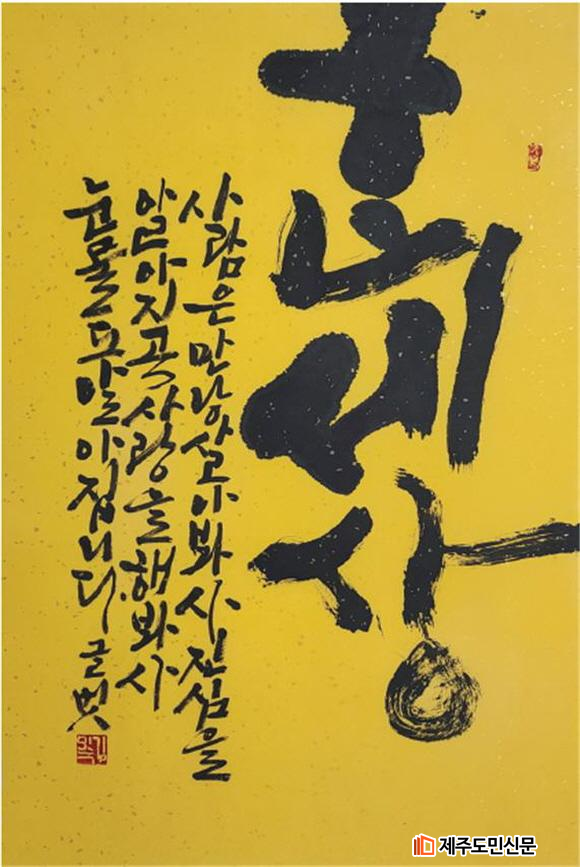 ᄒᆞᆫ세상
사람은 만낭 살아봐사 진심을
알아지곡 사랑을 해봐사
눈물도 알아집니다 글벗
제주도민신문